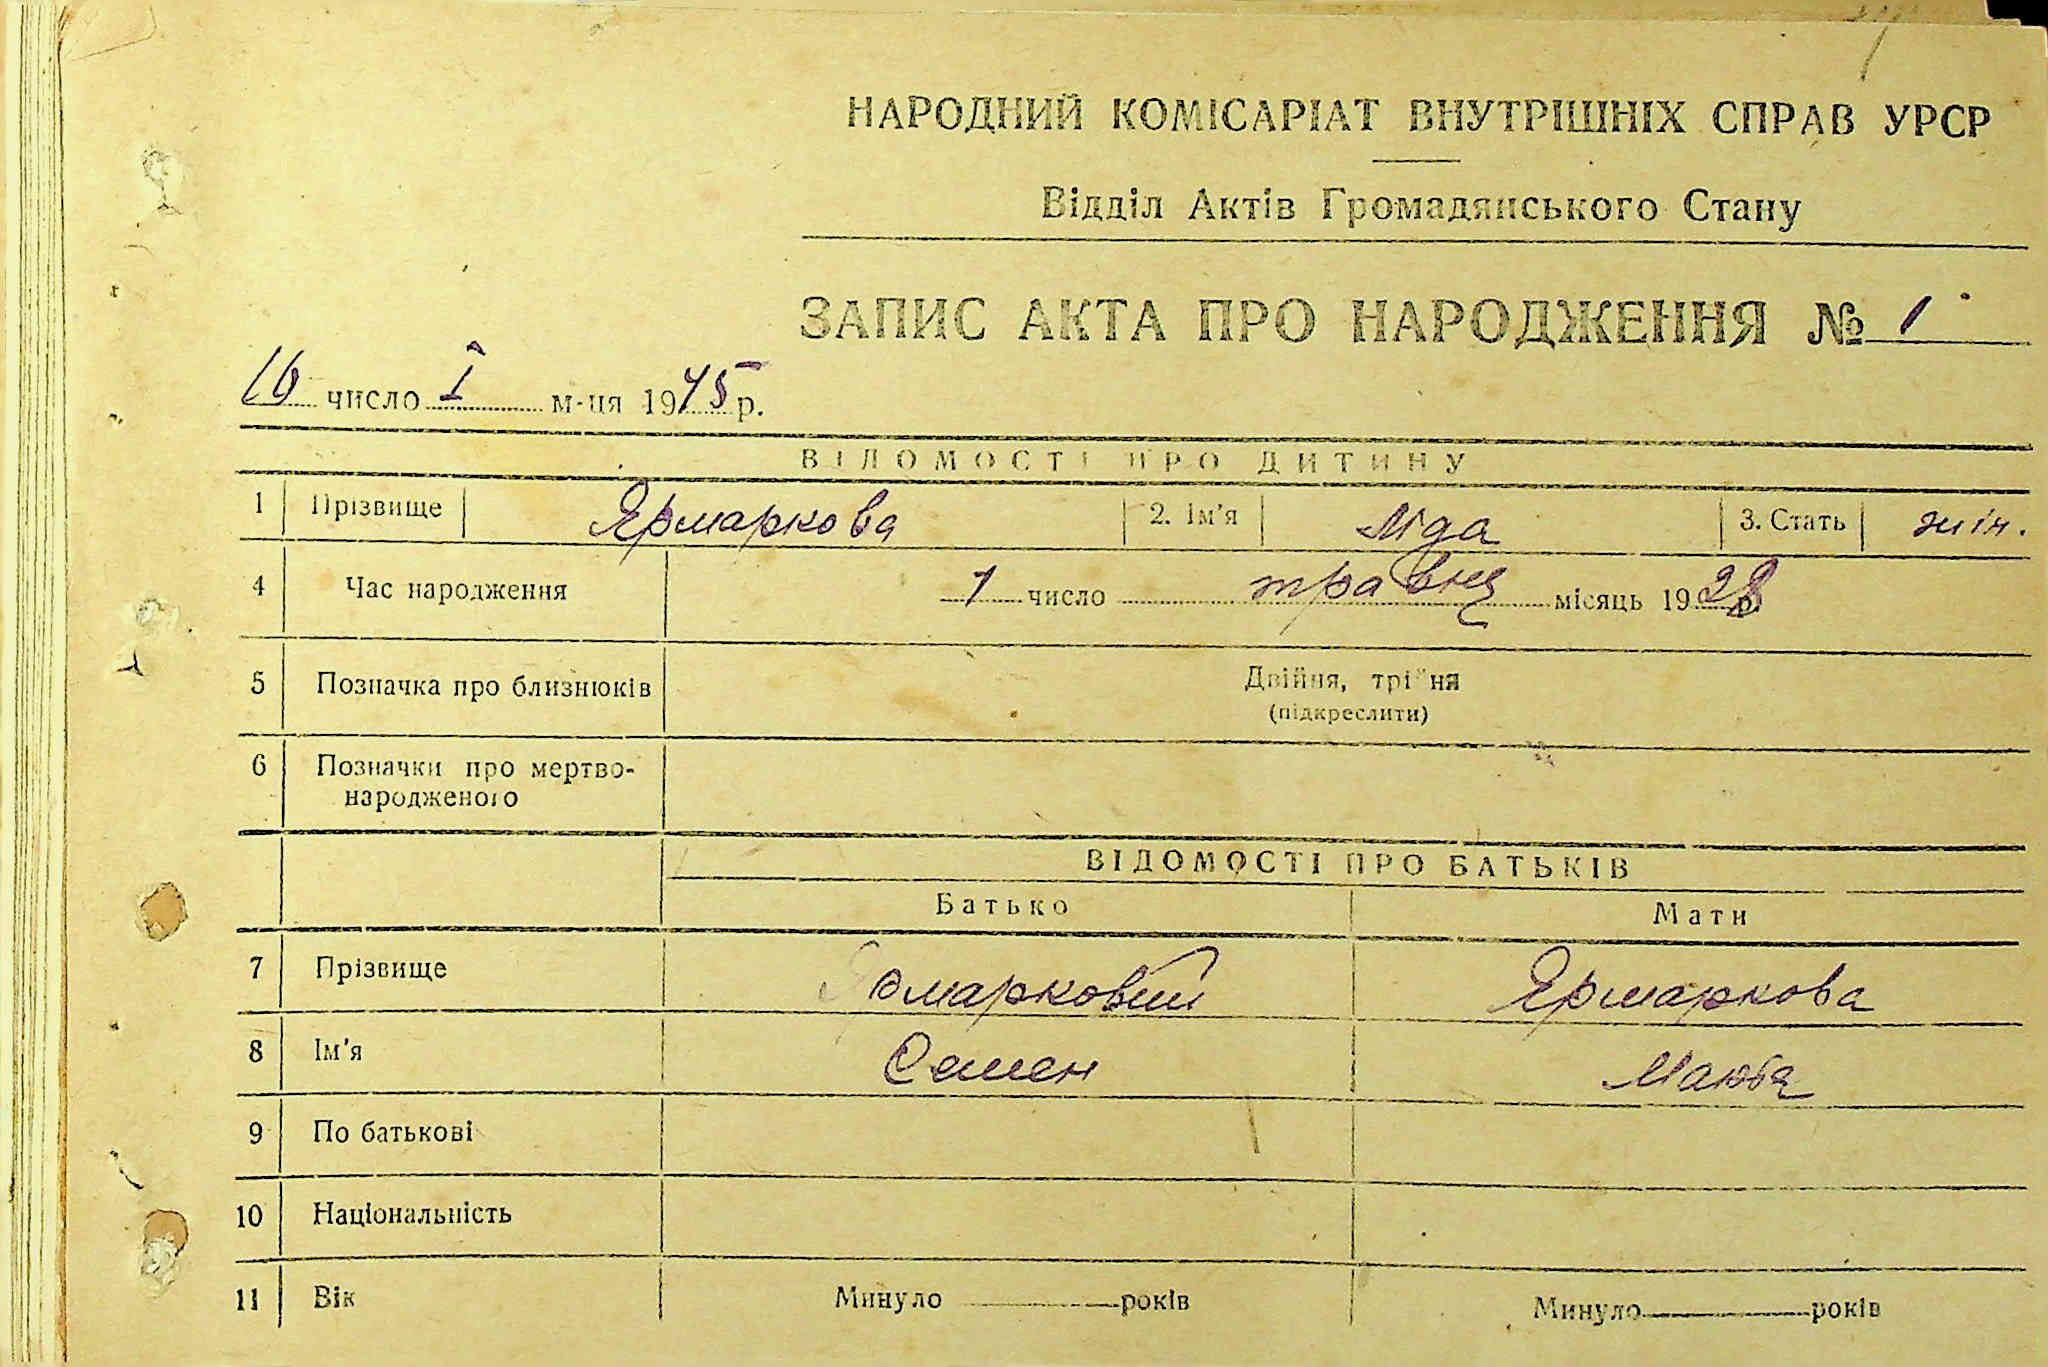 НАРОДНИЙ КОМІСАРІАТ ВНУТРІШНІХ СПРАВ УРСР
Відділ Актів Громадянського Стану
ЗАПИС АКТА ПРО НАРОДЖЕННЯ № 1
16 число I м-ця 1945 р.
ВІДОМОСТІ ПРО ДИТИНУ
1 Прізвище Ярмаркова 2. Ім'я Ліда 3. Стать жін.
4 Час народження 1 число травня місяць 1928 р.
5 Позначка про близнюків Двійня, трійня
(підкреслити)
6 Позначки про мертво-
народженого
ВІДОМОСТІ ПРО БАТЬКІВ
Батько Мати
7 Прізвище Ярмарковий Ярмаркова
8 Ім'я Семен
9 По батькові
10 Національність
11 Вік Минуло років Минуло років